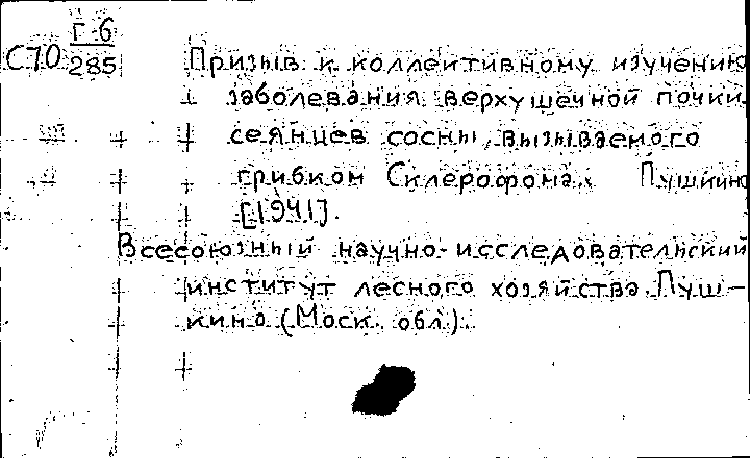 Г-6
С70 285 Призыв к коллективному изучению
заболевания верхушечной почки
сеянцев сосны, вызываемого
грибком Склерофома. Пушкино
[1941].
Всесоюзный научно-исследовательский
институт лесного хозяйства. Пуш-
кино (Моск. обл.).